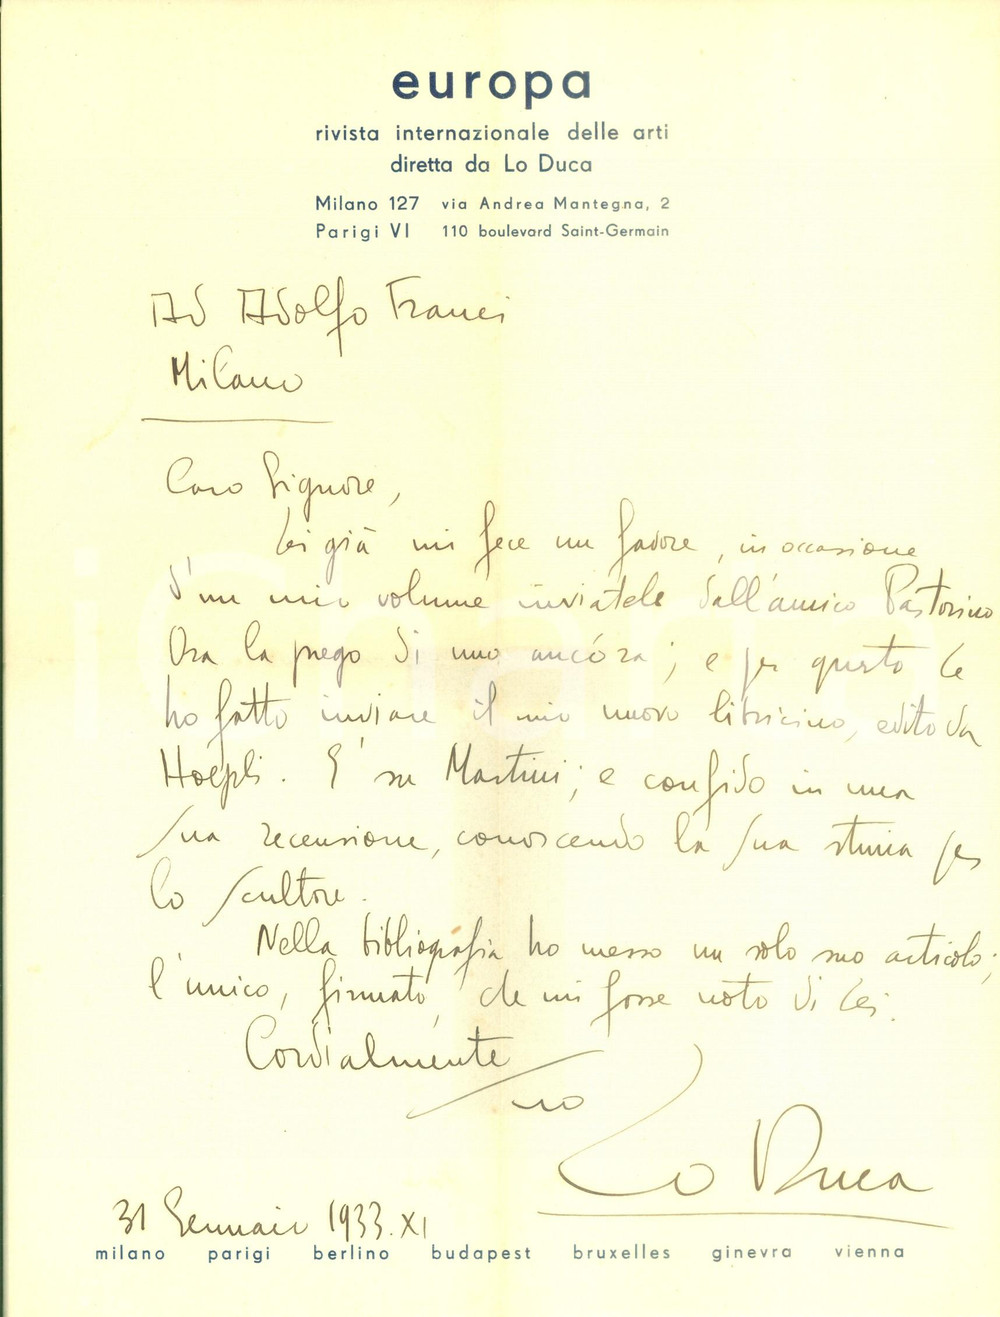 europa
rivista internazionale delle arti
diretta da Lo Duca
Milano 127 via Andrea Mantegna, 2
Parigi VI 110 boulevard Saint-Germain
Ad Adolfo Franci
Milano
Caro Signore,
Lei già mi fece un favore, in occasione
d'un mio volume inviatele dall'amico Pastorino
Ora la prego di uno ancóra; e per questo Le
ho fatto inviare il mio nuovo libricino, edito da
Hoepli. E' su Martini; e confido in una
Sua recensione, conoscendo la Sua stima per
lo scultore.
Nella bibliografia ho messo un solo suo articolo;
l'unico, firmato, che mi fosse noto di Lei.
Cordialmente
Suo
Lo Duca
31 Gennaio 1933.XI
milano parigi berlino budapest bruxelles ginevra vienna